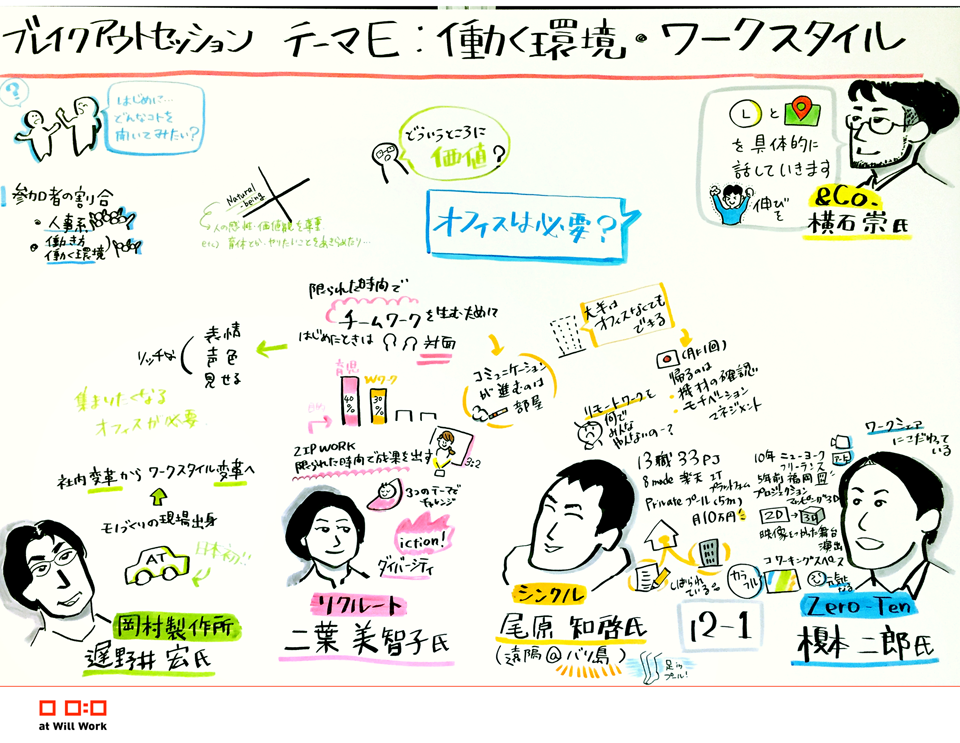 ブレイクアウトセッション テーマE:働く環境・ワークスタイル
?
はじめに…
どんなコトを
聞いてみたい?
参加者の割合
・人事系
・働き方
働く環境
Natural
-being
人の感性・価値観を尊重
どういうところに
価値?
オフィスは必要?
Lと
を具体的に
話していきます
伸びを
&Co.
横石崇氏
限られた時間で
チームワークを生むために
はじめにときは 対面
リッチな
表情
声色
見せる
集まりたくなる
オフィスが必要
社内変革からワークスタイル変革へ
モノづくりの現場出身
AT
日本初!!
岡村製作所
遅野井宏氏
育児
40%
Wワーク
30%
ZIP WORK
限られた時間で成果を出す
3:2
3つのテーマで
チャレンジ
iction!
ダイバーシティ
リクルート
二葉美智子氏
コミュニケーション
が進むのは
部屋
大半は
オフィスなくても
できる
(月1回)
帰るのは
・機材の確認
・モチベーション
マネジメント
リモートワークを
何で
みんな
やんないの-?
13職 33PJ
i mode 楽天 IT
プラットフォーム
Private プール(5m)
月10万円
しばられ
ている。
シンクル
尾原知啓氏
(遠隔@バリ島)
足in
プール!
12-1
ワークシェア
にこだわって
いる
10年 ニューヨーク
フリーランス
5年前 福岡
プロジェクション
マッピングが3D
2D→3D
映像とかった舞台
演出
コワーキングスペース
カラフル
元気に
なる
Zero-Ten
榎本二郎氏
at Will Work